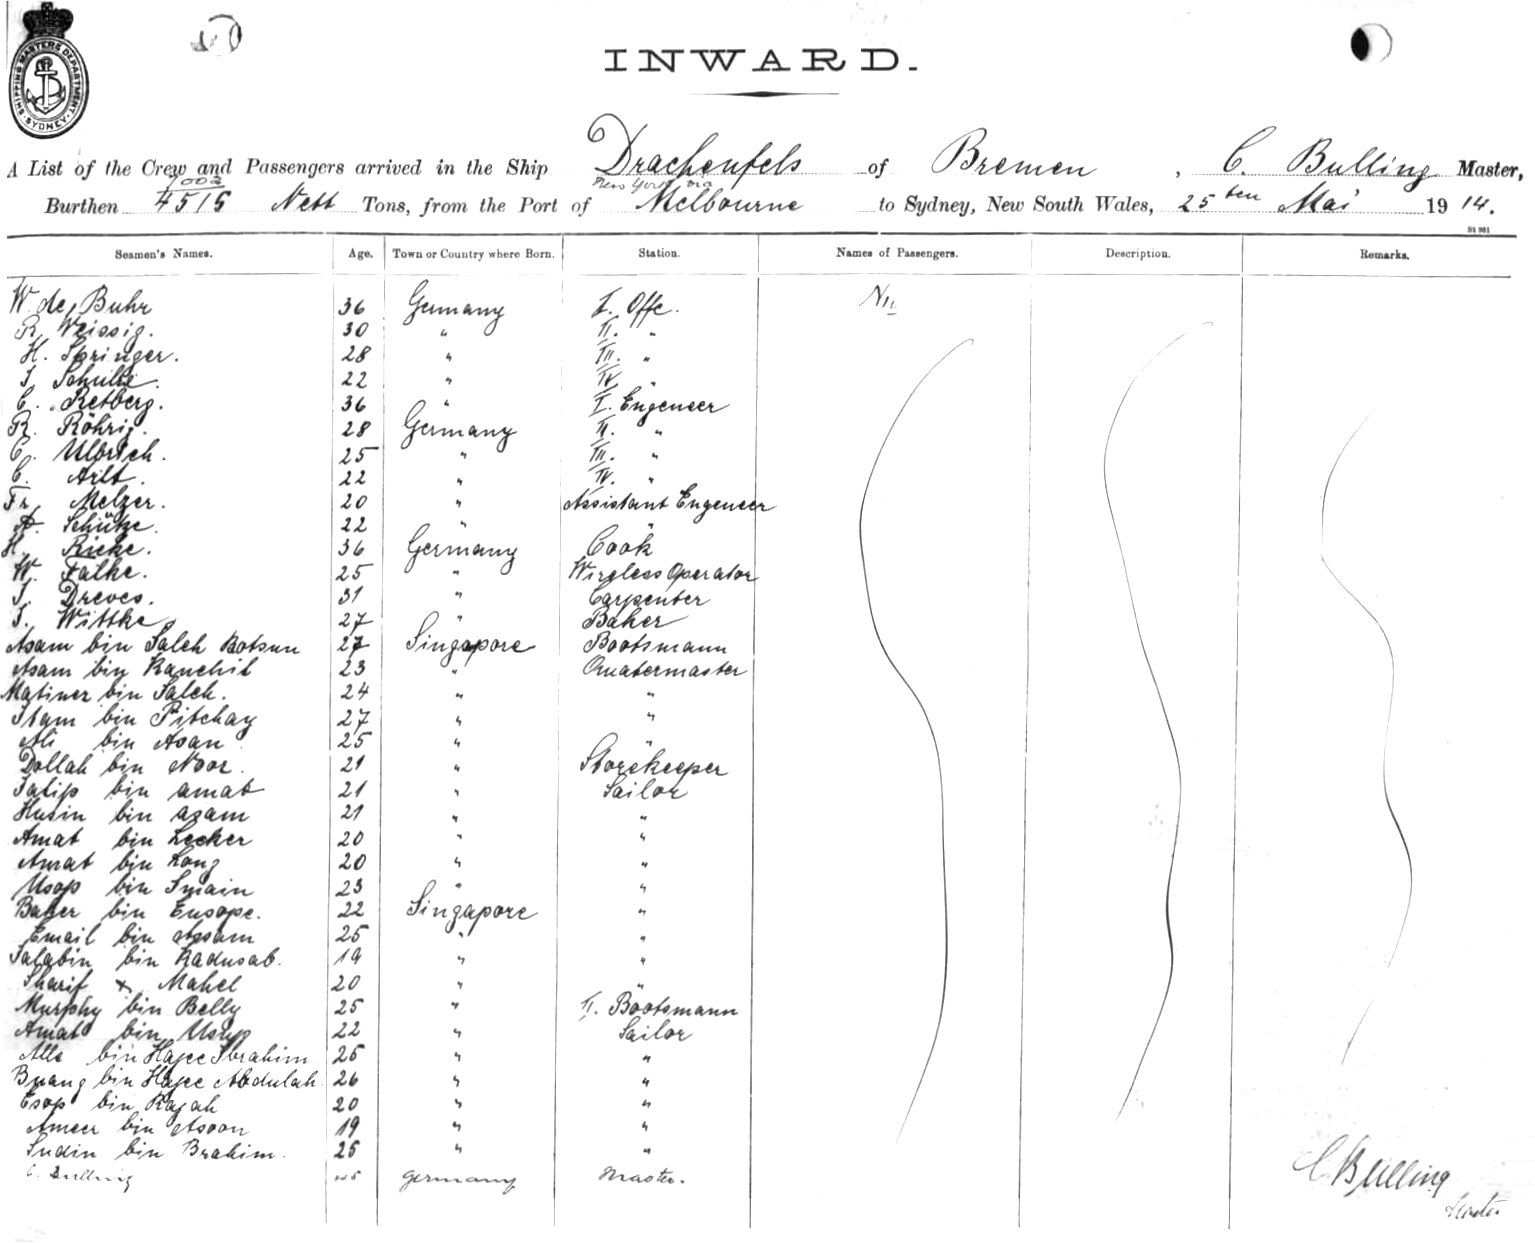 SHIPPING MASTERS DEPARTMENT
SYDNEY
INWARD.
A List of the Crew and Passengers arrived in the Ship Drachenfels of Bremen, C. Bulling Master,
New York via
Burthen 4515 Nett Tons, from the Port of Melbourne to Sydney, New South Wales, 25ten Mai 1914.
St 961
Seamen's Names. Age. Town or Country where Born. Station. Names of Passengers. Description. Remarks.
W. de Buhr 36 Germany I. Offc. Nil
R. Weissig. 30 " II. "
H. Springer. 28 " III. "
J. Schulte. 22 " IV. "
C. Retberg. 36 " I. Engeneer
R. Röhrig. 28 Germany II. "
C. Ulbrich. 25 " III. "
C. Arlt. 22 " IV. "
Fr. Melzer. 20 " Assistant Engeneer
A. Schütze. 22 " "
H. Ricke. 36 Germany Cook
W. Falke. 25 " Wireless Operator
J. Dreves. 31 " Carpenter
J. Wittke 27 " Baker
Asam bin Saleh Botsun 27 Singapore Bootsmann
Asam bin Kanchil 23 " Quatermaster
Matiner bin Saleh. 24 " "
Itam bin Pitchay 27 " "
Ali bin Asan 25 " "
Dollah bin Noor. 21 " Storekeeper
Talip bin amat 21 " Sailor
Husin bin asam 21 " "
Amat bin Lecker 20 " "
Amat bin Long 20 " "
Usop bin Smain 23 " "
Baker bin Eusope. 22 Singapore "
Email bin Assam 25 " "
Salabin bin Radusab. 19 " "
Sharif x Mahel 20 " "
Murphy bin Belly 25 " II. Bootsmann
Amat bin Usup 22 " Sailor
Alle bin Hajee Ibrahim 25 " "
Buang bin Hajee Abdulah 26 " "
Esop bin Rajah 20 " "
Ameer bin Asoon 19 " "
Sudin bin Brahim. 25 " "
C. Bulling 45 Germany Master.
C Bulling
Master